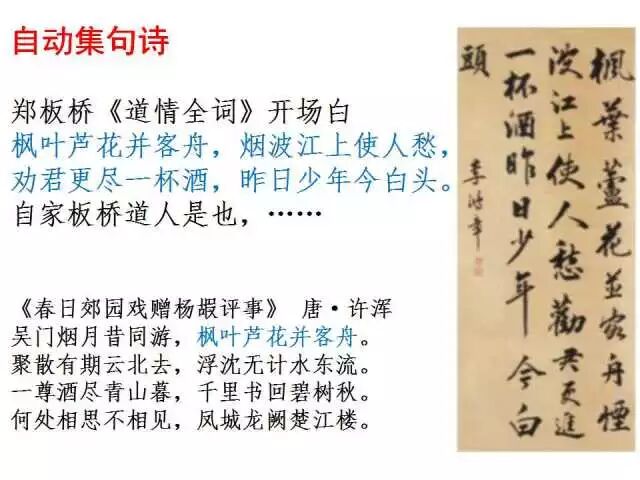 自动集句诗
郑板桥《道情全词》开场白
枫叶芦花并客舟，烟波江上使人愁，
劝君更尽一杯酒，昨日少年今白头。
自家板桥道人是也，……
《春日郊园戏赠杨嘏评事》 唐·许浑
吴门烟月昔同游，枫叶芦花并客舟。
聚散有期云北去，浮沈无计水东流。
一尊酒尽青山暮，千里书回碧树秋。
何处相思不相见，凤城龙阙楚江楼。
楓葉蘆花並客舟煙
波江上使人愁勸君更進
一杯酒昨日少年今白
頭
李鴻章